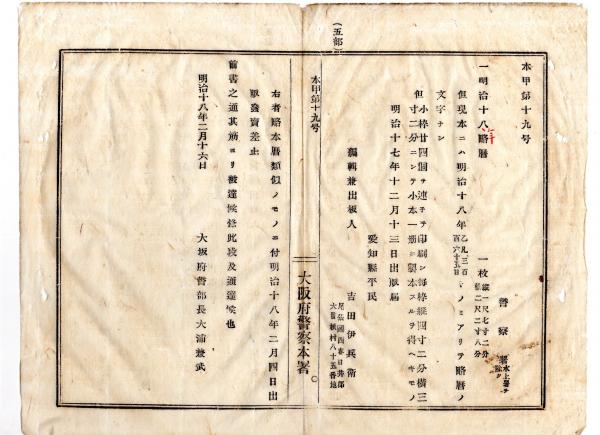 本甲第十九号
警察署
水上署ヲ除ク
一明治十八略暦
一枚
縦一尺七寸二分
横二尺二寸八分
但現本ニハ明治十八年乙凡三百百六十五日トノミアリテ略暦ノ
文字ナシ
但小枠廿四個ヲ連子テ印刷シ毎枠縦四寸二分横三
寸二分ニシテ小本一冊ニ製本スルヲ得ヘキモノ
明治十七年十二月十三日出版届
愛知縣平民
編輯兼出板人
吉田伊兵衛
尾張國西春日井郡
八十五番地
(五部)
本甲第十九号
大阪府警察本署
右者略本暦類似ノモノニ付明治十八年二月四日出
版発賣差止
前書之通其筋ヨリ被達候條此段及通達候也
明治十八年二月十六日
大坂府警部長大浦兼武